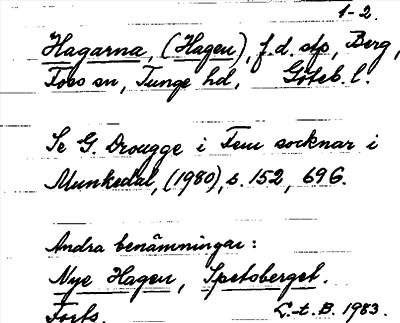 1-2.
Hagarna, (Hagen), f.d. stp, Berg,
Foss sn, Tunge hd, Göteb. l.
Se G. Drougge i Fem socknar i
Munkedal, (1980), s. 152, 696.
Andra benämningar:
Nye Hagen, Spetsberget.
Forts. L-t. B. 1983.